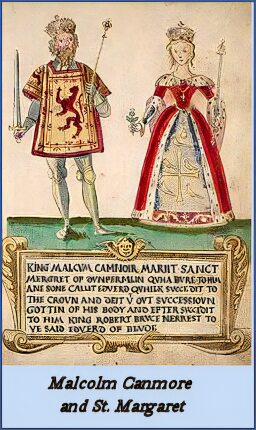 KING MALCVM CAMNOIR MARIIT SANCT
MERGRET OF DVNFERMLIN QVHA BVRE TO HIM
ANE SONE CALLIT EDVERD QVHILK SVCCEDIT TO
THE CROVN AND DEIT VOVT SVCCESSIOVN
GOTTIN OF HIS BODY AND EFTER SVCCEDIT
TO HIM KING ROBERT BRVCE NERREST TO
YE SAID EDVERD OF BLVDE
Malcolm Canmore
and St. Margaret